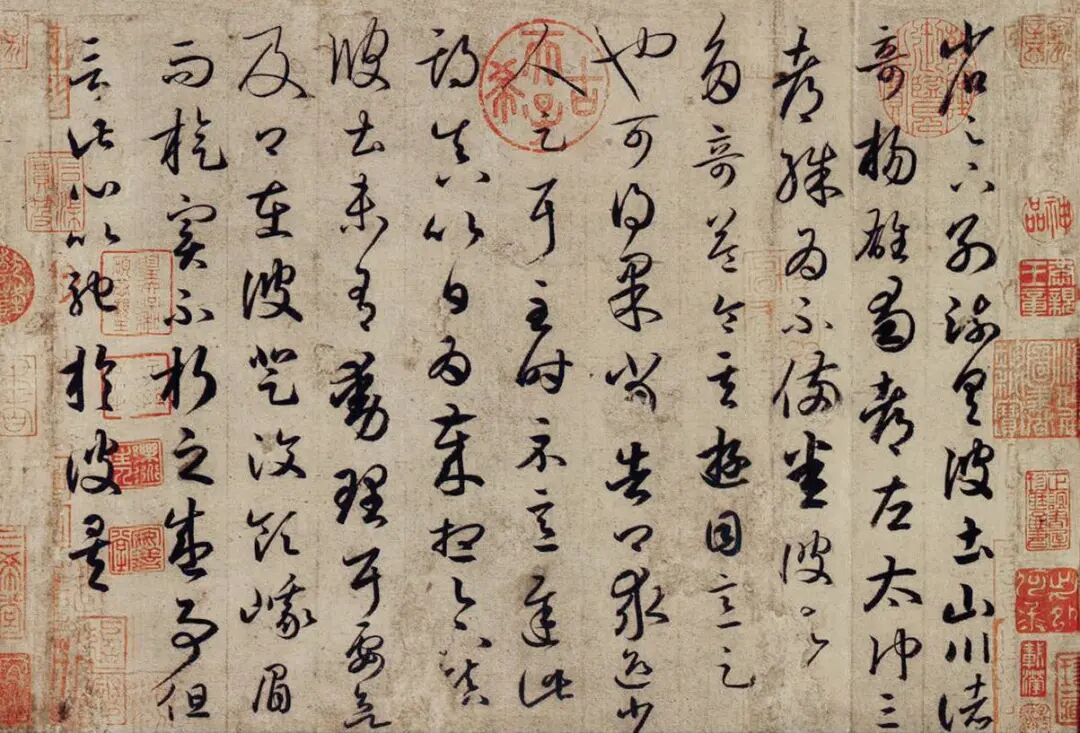 省足下別疏具彼土山川諸
奇揚雄蜀都左太沖三
都殊為不備悉彼故
多奇益令其遊目意足
也可得果當告卿求迎少
人足耳至時示意遲此
期真以日為歲想足下鎮
彼土未有動理耳要欲
及卿在彼登汶領峨眉
而旋實不朽之盛事但
言此心以馳於彼矣
古希天子
神品